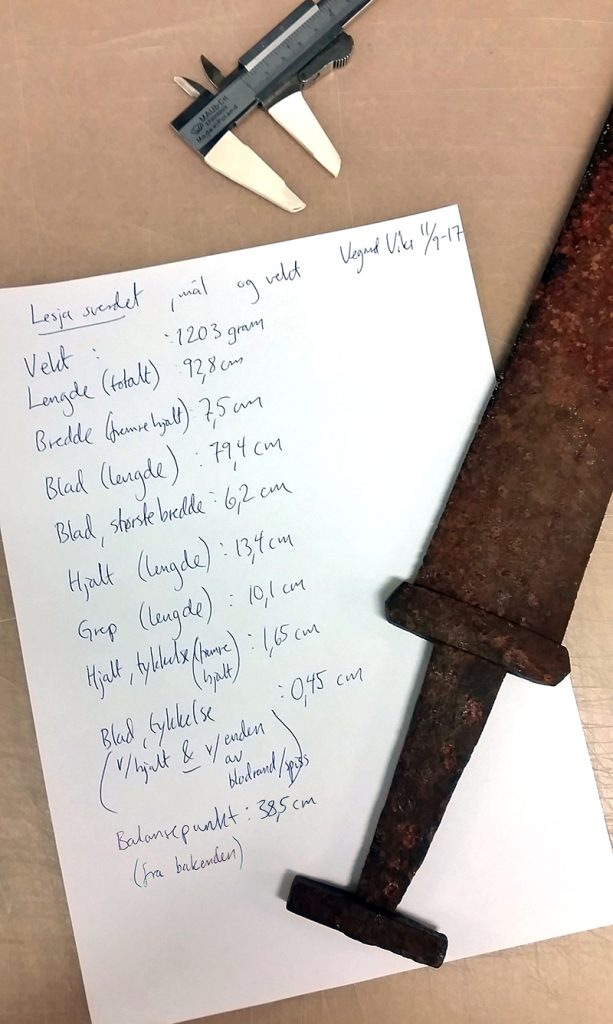 MAUb-CH
Made in Poland
Vegard Vike 11/9-17
Lesja sverdet, mål og vekt
Vekt : : 1203 gram
Lengde (totalt) : 92,8 cm
Bredde (fremre hjalt) : 7,5 cm
Blad (lengde) : 79,4 cm
Blad, største bredde : 6,2 cm
Hjalt (lengde) : 13,4 cm
Grep (lengde) : 10,1 cm
Hjalt, tykkelse (fremre hjalt) : 1,65 cm
Blad, tykkelse : 0,45 cm
(v/hjalt & v/enden
av
blodrand/spiss)
Balansepunkt : 38,5 cm
(fra bakenden)